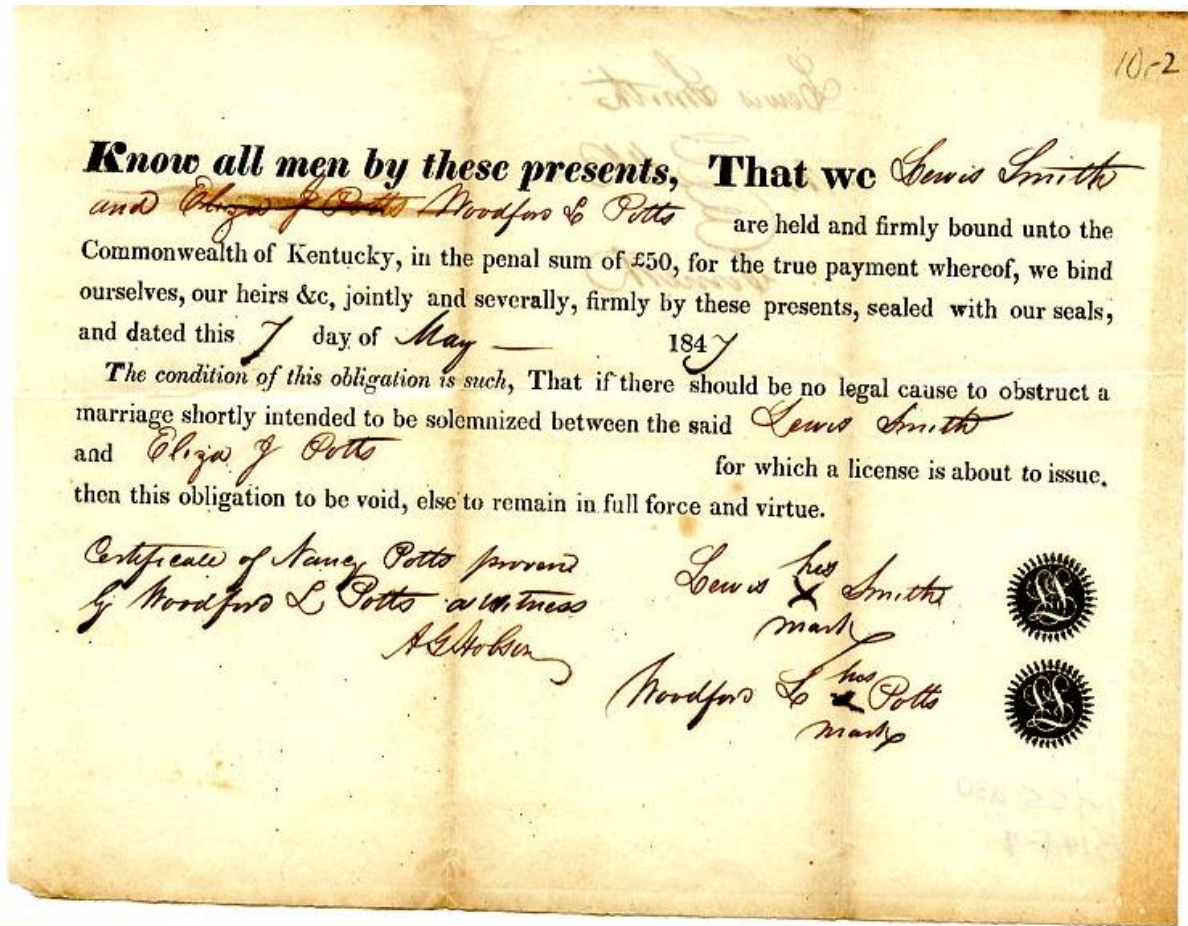 10-2
Know all men by these presents, That we Lewis Smith
and Eliza J Potts Woodford L Potts are held and firmly bound unto the
Commonwealth of Kentucky, in the penal sum of £50, for the true payment whereof, we bind
ourselves, our heirs &c, jointly and severally, firmly by these presents, sealed with our seals,
and dated this 7 day of May 1847
The condition of this obligation is such, That if there should be no legal cause to obstruct a
marriage shortly intended to be solemnized between the said Lewis Smith
and Eliza J Potts for which a license is about to issue,
then this obligation to be void, else to remain in full force and virtue.
Certificate of Nancy Potts proven
by Woodford L Potts a witness
A G Hobson
Lewis his X Smith
mark
Woodford L his x Potts
mark